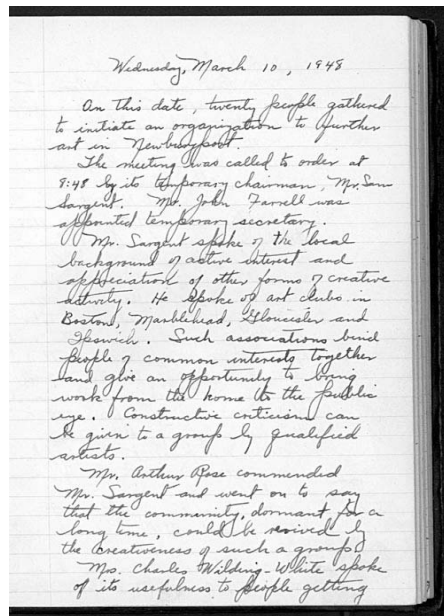 Wednesday, March 10, 1948
On this date, twenty people gathered
to initiate an organization to further
art in Newburyport.
The meeting was called to order at
8:48 by its temporary chairman, Mr. Sam
Sargent. Mr. John Farrell was
appointed temporary secretary.
Mr. Sargent spoke of the local
background of active interest and
appreciation of other forms of creative
activity. He spoke of art clubs in
Boston, Marblehead, Gloucester and
Ipswich. Such associations bind
people of common interests together
and give an opportunity to bring
work from the home to the public
eye. Constructive criticism can
be given to a group by qualified
artists.
Mr. Arthur Rose commended
Mr. Sargent and went on to say
that the community, dormant for a
long time, could be revived by
the creativeness of such a group.
Mrs. Charles Wilding-White spoke
of its usefulness to people getting